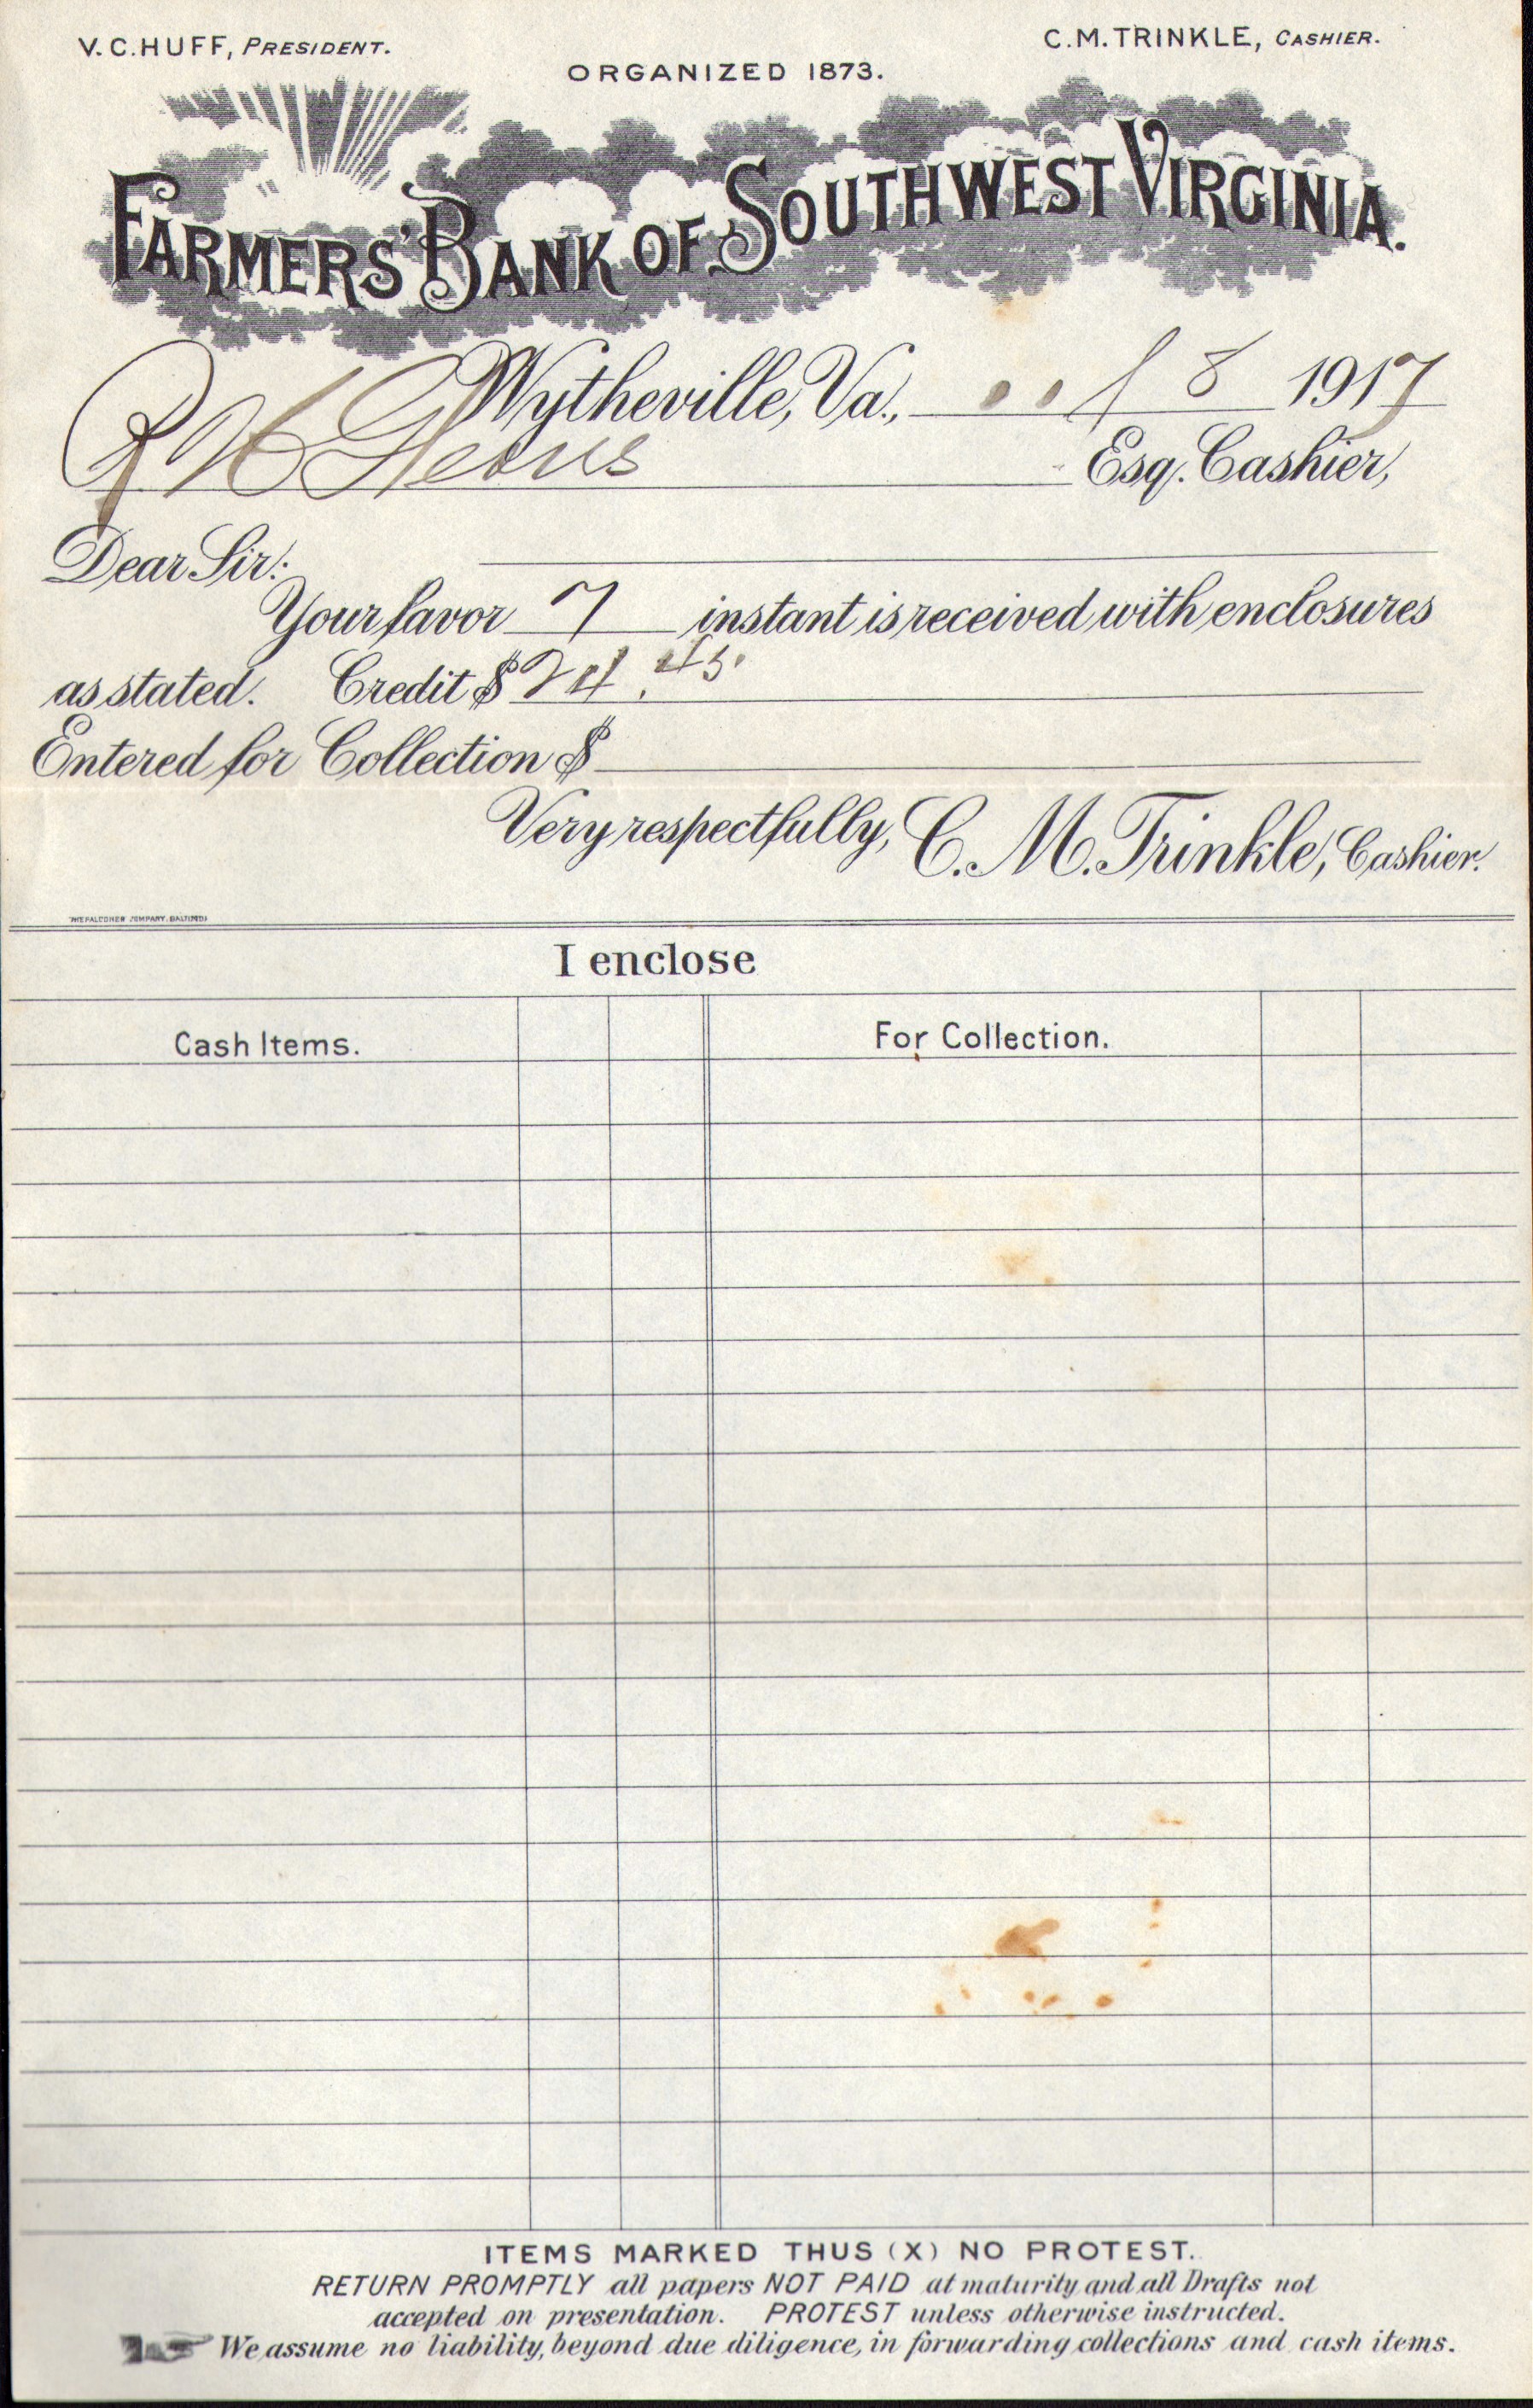 V. C. HUFF, PRESIDENT.
C. M. TRINKLE, CASHIER.
ORGANIZED 1873.
FARMERS' BANK OF SOUTHWEST VIRGINIA.
Wytheville, Va., 8 1917
R H
Esq. Cashier,
Dear Sir:
Your favor 7 instant is received with enclosures
as stated. Credit $ 24.45.
Entered for Collection $
Very respectfully, C. M. Trinkle, Cashier.
THE FALCONER COMPANY, BALTIMORE
I enclose
Cash Items.
For Collection.
ITEMS MARKED THUS (X) NO PROTEST.
RETURN PROMPTLY all papers NOT PAID at maturity and all Drafts not
accepted on presentation. PROTEST unless otherwise instructed.
We assume no liability, beyond due diligence, in forwarding collections and cash items.